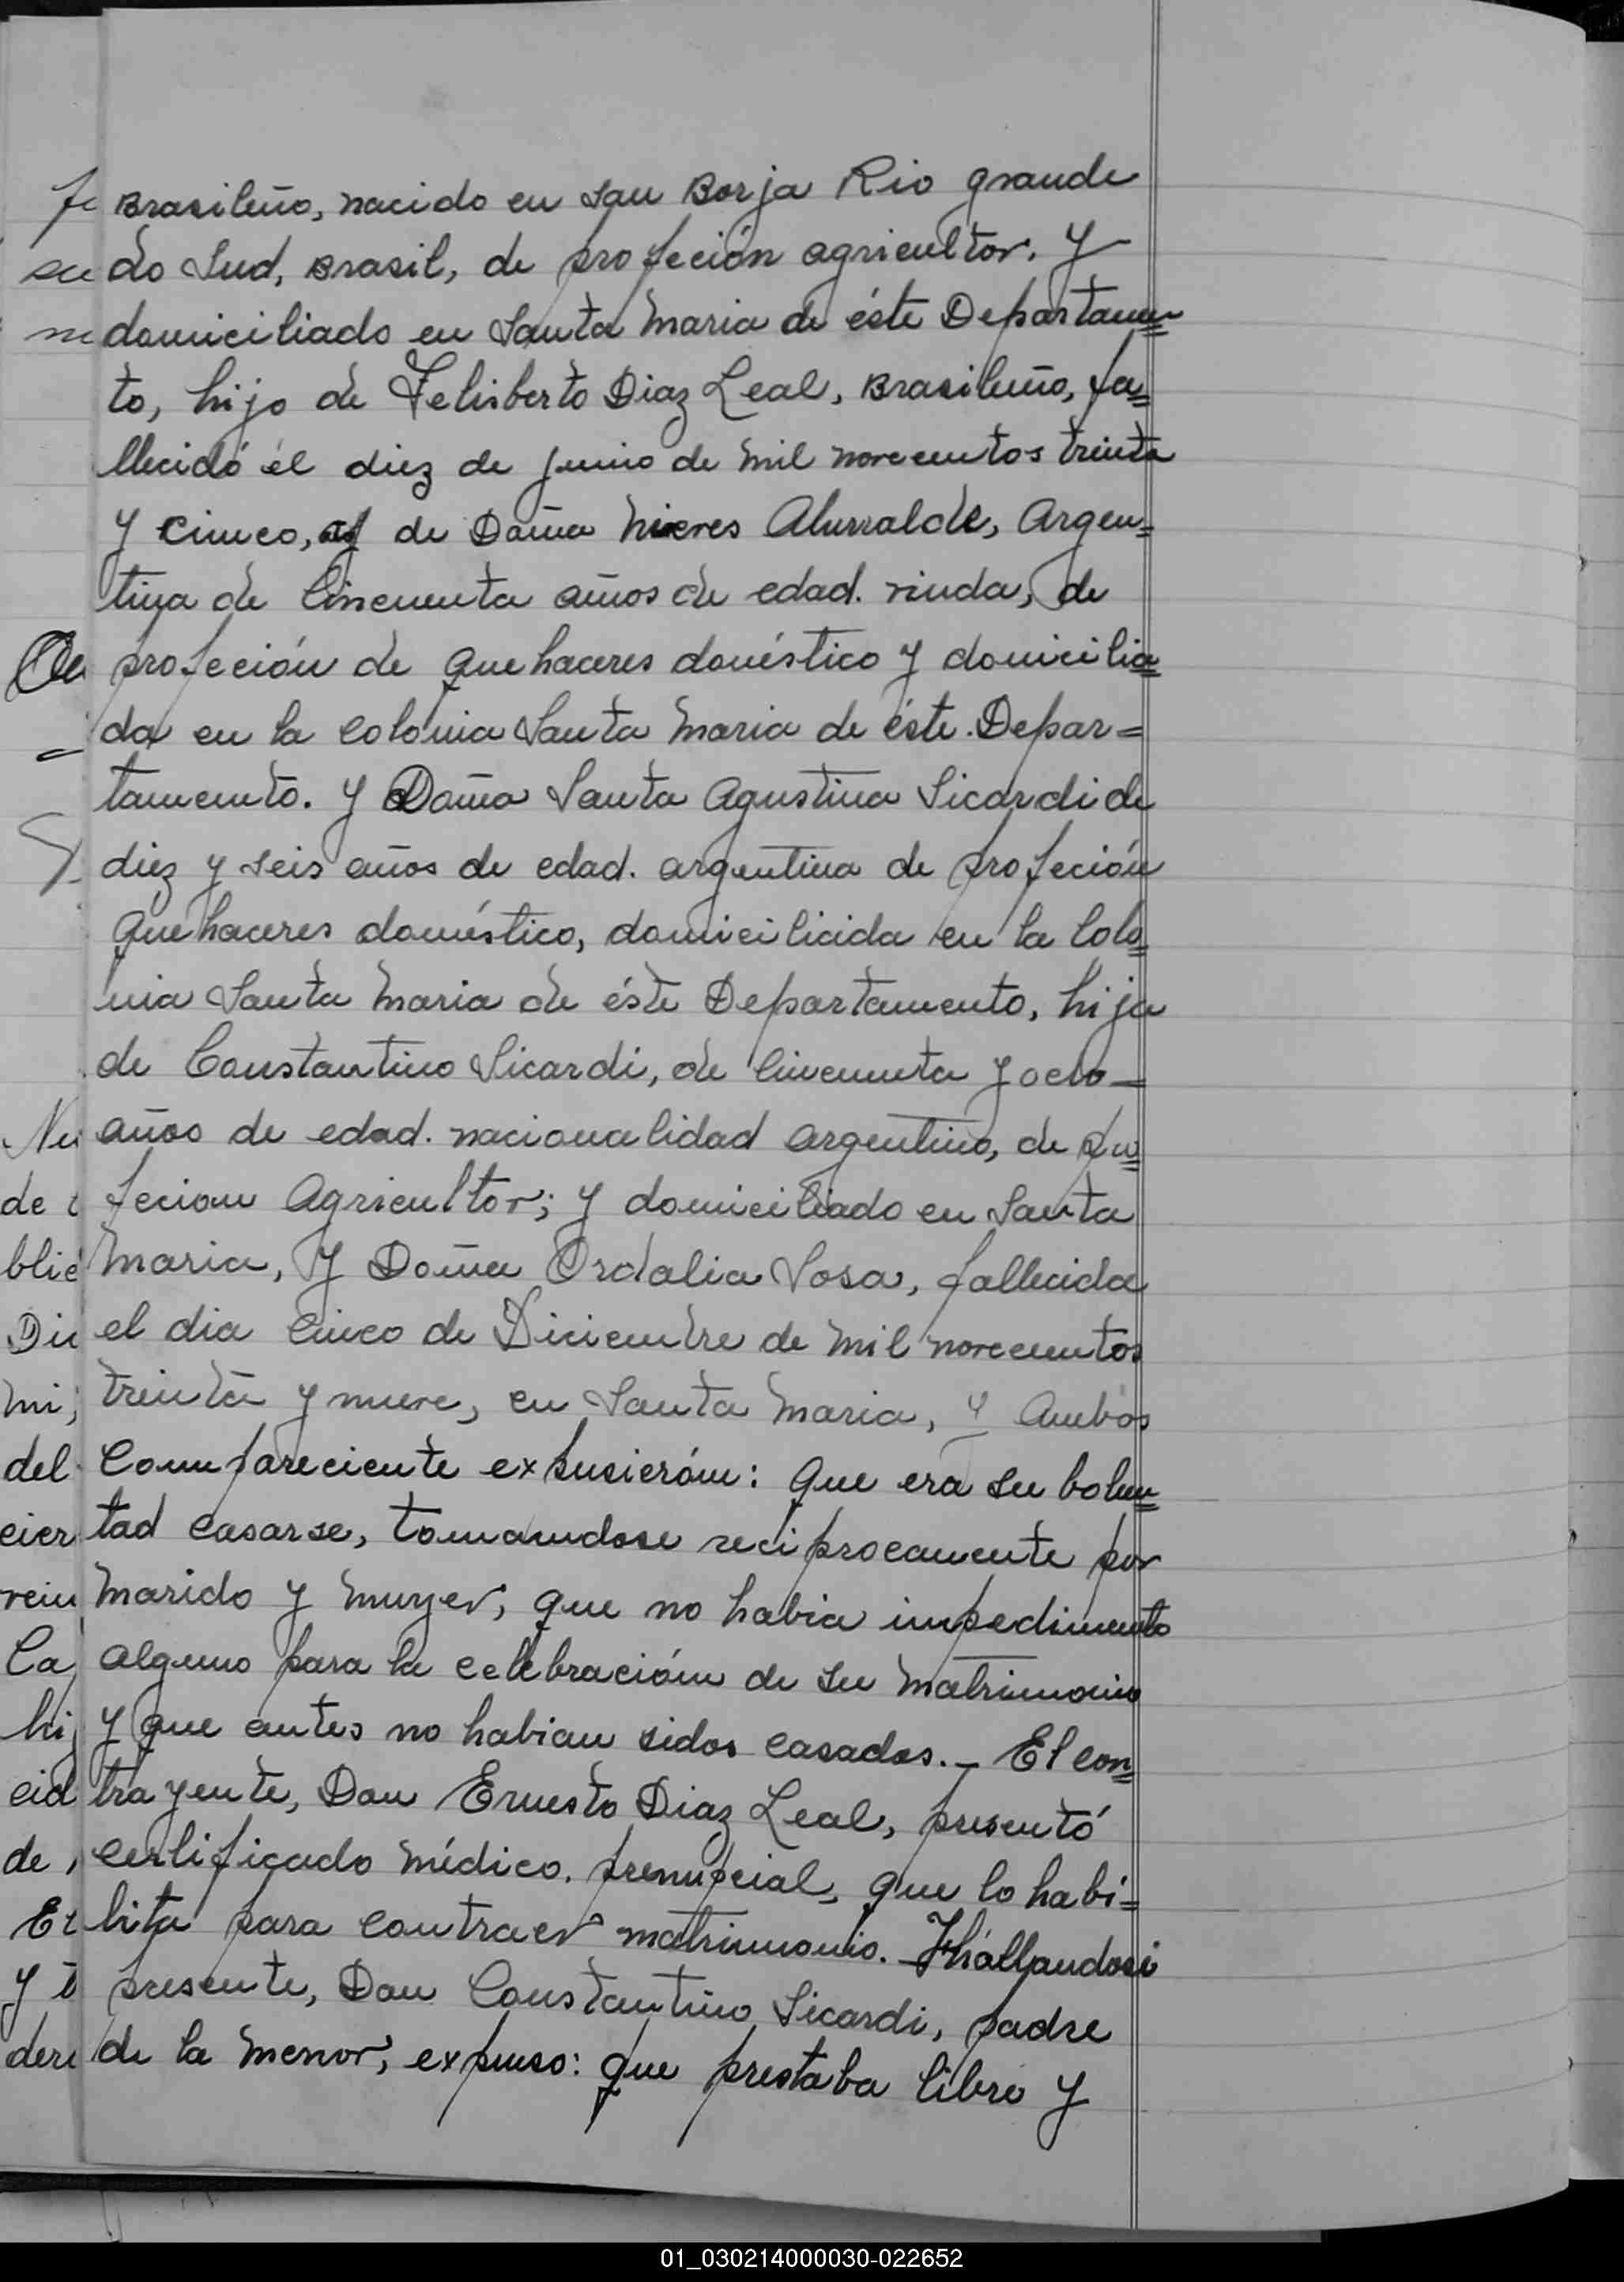 Brasileño, nacido en San Borja Rio grande
do Sud, Brasil, de profeción agricultor. Y
domiciliado en Santa Maria de éste Departamen=
to, hijo de Felisberto Diaz Leal, Brasileño, fa=
llecidó él diez de junio de mil novecentos treinta
y cinco, y de Doña Nieves Alurralde, Argen=
tina de Cincuenta años de edad. viuda, de
profeción de quehaceres doméstico y domicilia=
da en la colonia Santa Maria de éste. Depar=
tamento. Y Doña Santa Agustina Sicardi de
diez y seis años de edad. argentina de profeción
quehaceres doméstico, domicilicida en la Colo=
nia Santa Maria de éste Departamento, hija
de Constantino Sicardi, de Cincuenta y ocho
años de edad. nacionalidad argentino, de pro=
fecion Agricultor; y domiciliado en Santa
Maria, Y Doña Ordalia Sosa, fallecida
el dia Cinco de Diciembre de mil novecentos
treinta y nueve, en Santa Maria, y Ambos
Compareciente expusierón: que era su bolun=
tad casarse, tomandose reciprocamente por
marido y muyer, que no habia impedimento
alguno para la celebración de su matrimonio
y que antes no habian sidos casados. _ El con=
trayente, Don Ernesto Diaz Leal, presentó
certificado médico. prenupcial, que lo habi=
lita para contraer matrimonio. _ Hhállandose
presente, Don Constantino Sicardi, padre
de la menor, expuso: que prestaba libre y
01_030214000030-022652